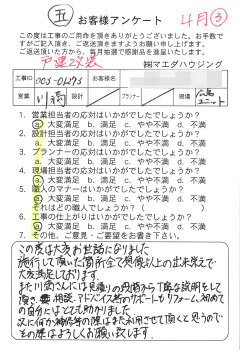 五 お客様アンケート 4月③
この度は工事のご用命を頂きありがとうございました。お手数で
すがご記入頂き、ご返送頂きますようお願い申し上げます。
ご返送頂いた方から、毎月抽選で感謝品を進呈いたします。
戸建改装 ㈱マエダハウジング
工事ID お客様名
営業 設計 プランナー 現場
1. 営業担当者の対応はいかがでしたでしょうか？
a. 大変満足 b. 満足 c. やや不満 d. 不満
2. 設計担当者の対応はいかがでしたでしょうか？
a. 大変満足 b. 満足 c. やや不満 d. 不満
3. プランナーの対応はいかがでしたでしょうか？
a. 大変満足 b. 満足 c. やや不満 d. 不満
4. 現場担当者の対応はいかがでしたでしょうか？
a. 大変満足 b. 満足 c. やや不満 d. 不満
5. 職人のマナーはいかがでしたでしょうか？
a. 大変満足 b. 満足 c. やや不満 d. 不満
それはどの職人でしょうか？（ ）
6. 工事の仕上がりはいかがでしたでしょうか？
a. 大変満足 b. 満足 c. やや不満 d. 不満
7. その他、ご意見・ご要望をお書き下さい。
この度は大変お世話になりました
施行して頂いた箇所全て見積以上の出来栄えで
大変満足しております。
また川満さんには見積りの段階から丁寧な説明をして
頂き、相談、アドバイス等のサポートもリフォーム初めて
の自分にはとても助かりました
次に何か補修等の際はまた利用させて頂くと思うので
その際はよろしくお願い致します。